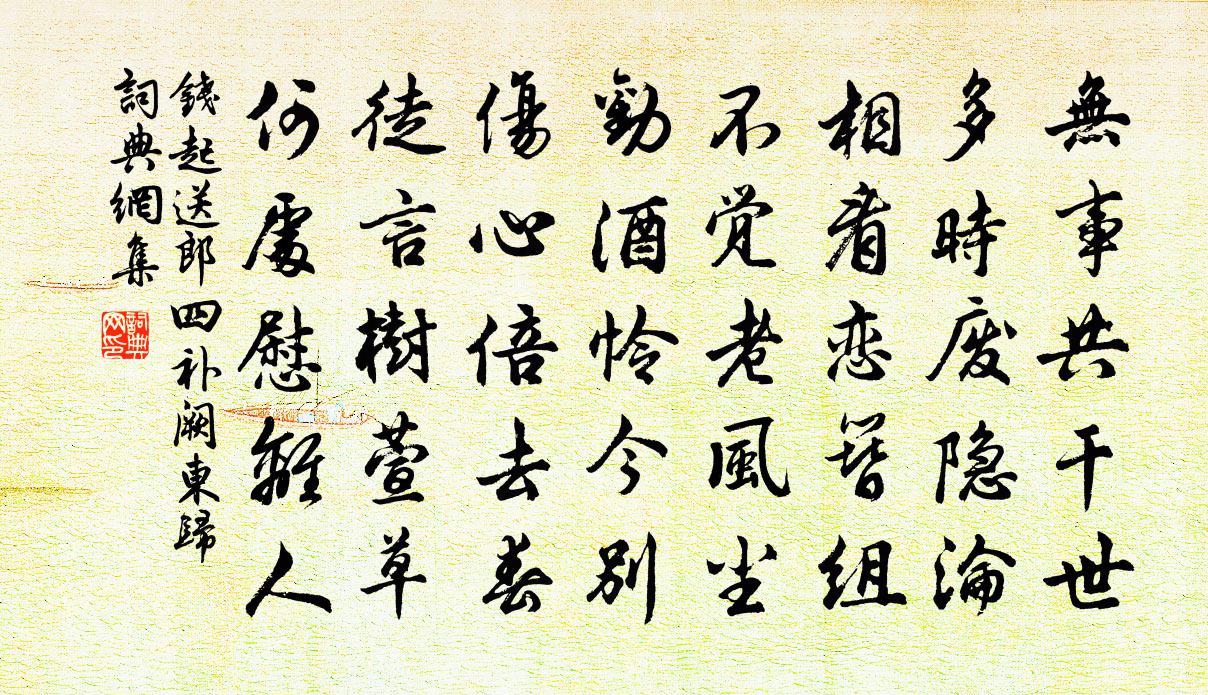 無事共干世
多時废隐淪
相看恋簪組
不觉老風尘
勸酒怜今别
傷心倍去春
徒言樹萱草
何處慰離人
錢起送郎四补阙東歸
詞典網集
詞典網印